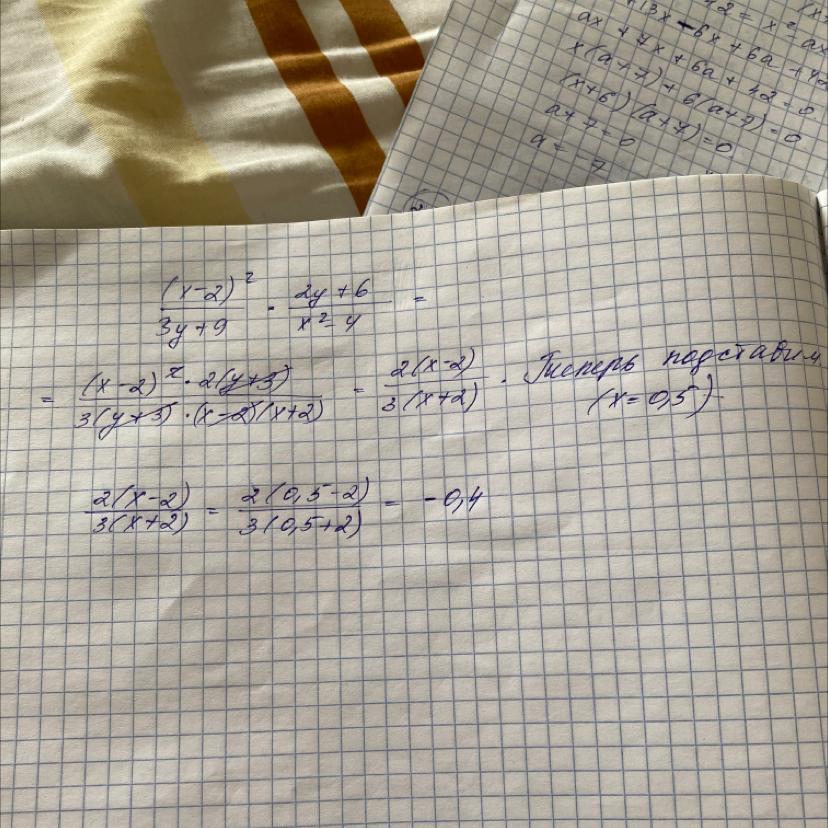 13x - 6x + 6a + 42
ax + 7x + 6a + 42 = 0
x(a+7) + 6(a+7) = 0
(x+6)(a+7) = 0
a + 7 = 0
a = -7
(x-2)² / 3y+9 · 2y+6 / x²-4 =
= (x-2)² · 2(y+3) / 3(y+3) · (x-2)(x+2) = 2(x-2) / 3(x+2) . Теперь подставим
(x=0,5)
2(x-2) / 3(x+2) = 2(0,5-2) / 3(0,5+2) = -0,4